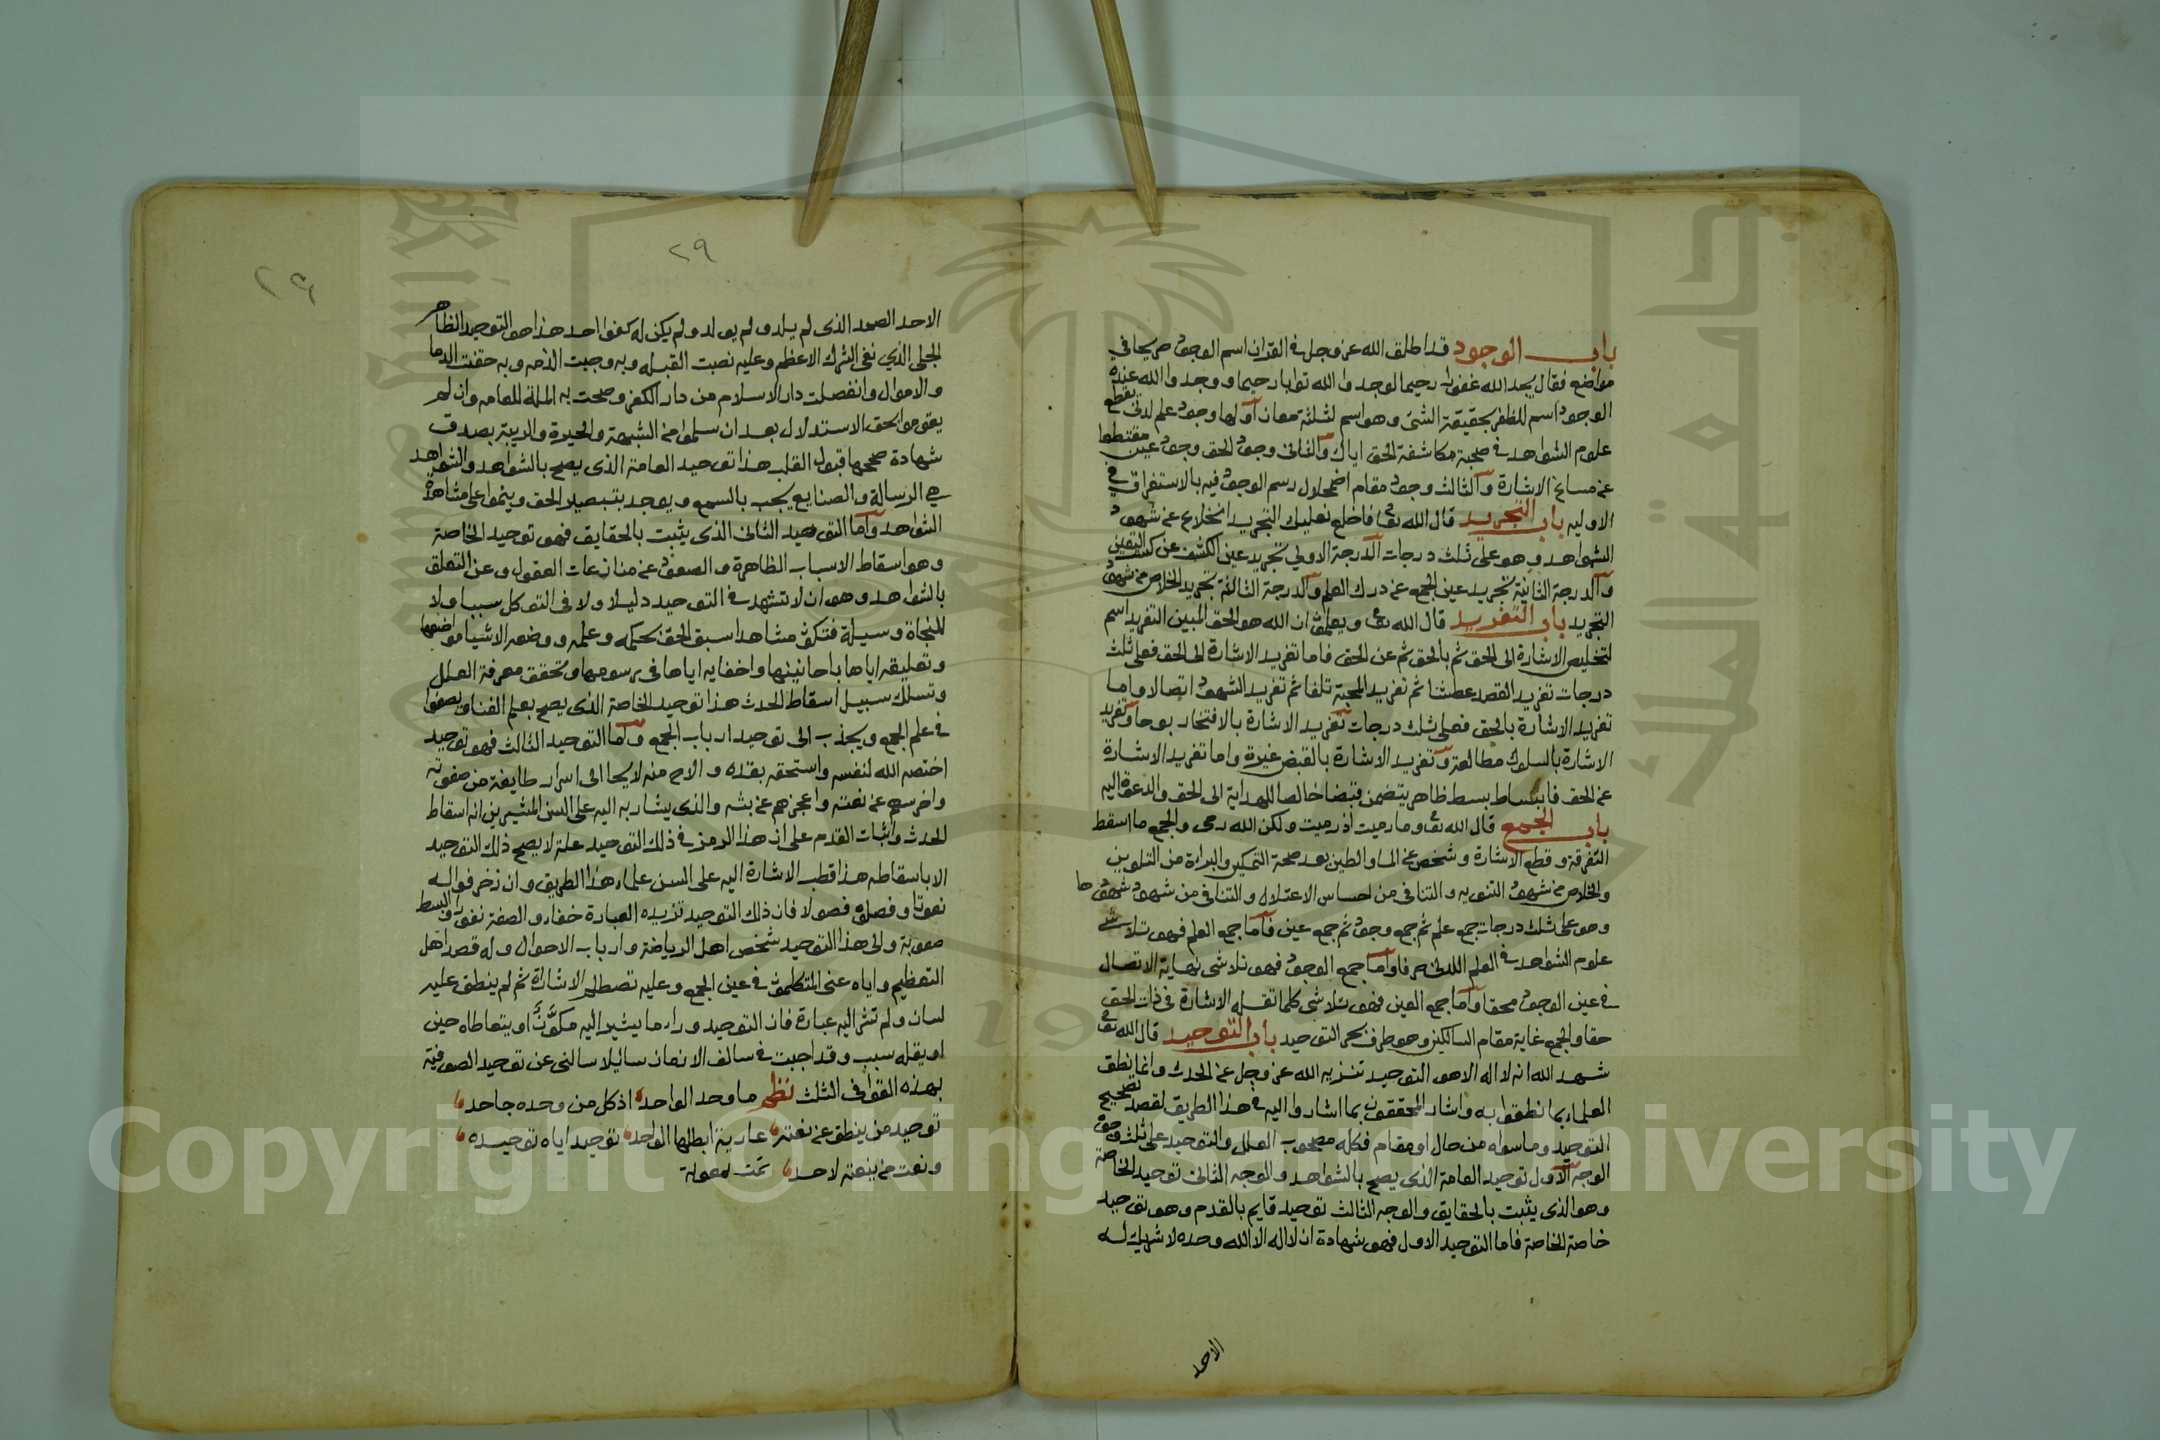 باب الوجود قد اطلق الله عز وجل في القران اسم الوجود صريحا في
مواضع فقال يجد الله غفورا رحيما لوجدوا الله توابا رحيما ووجد الله عنده
الوجود اسم للظفر بحقيقة الشئ وهو اسم لثلثة معان اولها وجود علم لدني يقطع
علوم الشواهد في صحبة مكاشفة الحق اياك والثاني وجود الحق وجود عين مقتطعا
عن مساغ الاشارة والثالث وجود مقام اضمحلال رسم الوجود فيه بالاستغراق في
الاوليه باب التجريد قال الله تعا فاخلع نعليك التجريد انخلاع عن شهود
الشواهد وهو على ثلث درجات الدرجة الاولي تجريد عين الكشف عن كسب اليقين
والدرجة الثانية تجريد عين الجمع عن درك العلم والدرجة الثالثة تجريد الخلاص من شهود
التجريد باب التفريد قال الله تعا ويعلمون ان الله هو الحق المبين التفريد اسم
لتخليص الاشارة الى الحق ثم بالحق ثم عن الحق فاما تفريد الاشارة الى الحق فعلى ثلث
درجات تفريد القصد عطشا ثم تفريد المحبة تلفا ثم تفريد الشهود اتصالا واما
تفريد الاشارة بالحق فعلى ثلث درجات تفريد الاشارة بالافتخار بوحا وتفريد
الاشارة بالسلوك مطالعة وتفريد الاشارة بالقبض غيرة واما تفريد الاشارة
عن الحق فانبساط ببسط ظاهر يتضمن قبضا خالصا للهداية الى الحق والدعوة اليه
باب الجمع قال الله تعا وما رميت اذ رميت ولكن الله رمى والجمع ما اسقط
التفرقة وقطع الاشارة وشخص عن الماء والطين بعد صحة التمكين والبراءة من التلوين
والخلاص من شهود الثنويه والتنافي من احساس الاعتلال والتنافي من شهود شهودها
وهو على ثلث درجات جمع علم ثم جمع وجود ثم جمع عين فاما جمع العلم فهو تلاشي
علوم الشواهد في العلم اللدني صرفا واما جمع الوجود فهو تلاشى نهاية الاتصال
في عين الوجود محقا واما جمع العين فهو تلاشي كلما تقله الاشارة في ذات الحق
حقا والجمع غاية مقام السالكين وهو طرف بحر التوحيد باب التوحيد قال الله تعا
شهد الله انه لا اله الا هو التوحيد تنزيه الله عز وجل عن الحدث وانما نطق
العلماء بما نطقوا به واشار المحققون بما اشاروا اليه في هذا الطريق لقصد تصحيح
التوحيد وما سواه من حال او مقام فكله مصحوب العلل والتوحيد على ثلث وجوه
الوجه الاول توحيد العامة الذي يصح بالشواهد والوجه الثاني توحيد الخاصة
وهو الذي يثبت بالحقايق والوجه الثالث توحيد قايم بالقدم وهو توحيد
خاصة الخاصة فاما التوحيد الاول فهو شهادة ان لا اله الا الله وحده لا شريك له
الاحد
٢٩
٢٩
الاحد الصمد الذي لم يلد ولم يولد ولم يكن له كفوا احد هذا هو التوحيد الظاهر
الجلي الذي نفى الشرك الاعظم وعليه نصبت القبله وبه وجبت الذمه وبه حقنت الدما
والاموال وانفصلت دار الاسلام من دار الكفر وصحت به الملة للعامه وان لم
يقوموا بحق الاستدلال بعد ان سلموا من الشبهة والحيرة والريبة بصدق
شهادة صححها قبول القلب هذا توحيد العامة الذي يصح بالشواهد والشواهد
هي الرسالة والصنايع يجب بالسمع ويوجد بتبصير الحق وينموا على مشاهدة
الشواهد واما التوحيد الثاني الذي يثبت بالحقايق فهو توحيد الخاصة
وهو اسقاط الاسباب الظاهرة والصعود عن منازعات العقول وعن التعلق
بالشواهد وهو ان لا تشهد في التوحيد دليلا ولا في التوكل سببا ولا
للنجاة وسيلة فتكون مشاهدا سبق الحق بحكمه وعلمه ووضعه الاشيا مواضعها
وتعليقه اياها باحايينها واخفايه اياها في رسومها وتحقق معرفة العلل
وتسلك سبيل اسقاط الحدث هذا توحيد الخاصة الذي يصح بعلم الفنا ويصفوا
في علم الجمع ويجذب الى توحيد ارباب الجمع واما التوحيد الثالث فهو توحيد
اختصه الله لنفسه واستحقه بقدره والاح منه لايحا الى اسرار طايفة من صفوته
واخرسهم عن نعته واعجزهم عن بثه والذي يشار به اليه على السن المشيرين انه اسقاط
الحدث واثبات القدم على ان هذا الرمز في ذلك التوحيد علة لا يصح ذلك التوحيد
الا باسقاطه هذا قطب الاشارة اليه على السن علماء هذا الطريق وان زخرفوا له
نعوتا وفصلوه فصولا فان ذلك التوحيد تزيده العبارة خفاء والصفة نفورا والبسط
صعوبة والى هذا التوحيد شخص اهل الرياضة وارباب الاحوال وله قصد اهل
التعظيم واياه عنى المتكلمون في عين الجمع وعليه تصطلم الاشارات ثم لم ينطق عليه
لسان ولم تشر اليه عبارة فان التوحيد وراء ما يشير اليه مكون او يتعاطاه حين
او يقله سبب وقد اجبت في سالف الازمان سايلا سالني عن توحيد الصوفية
بهذه القوافي الثلث نظم ما وحد الواحد اذ كل من وحده جاحد
توحيد من ينطق عن نعته عارية ابطلها الواحد توحيد اياه توحيده
ونعت من ينعته لاحد تمت بعونه
Copyright © King Saud University
جامعة الملك سعود
1957